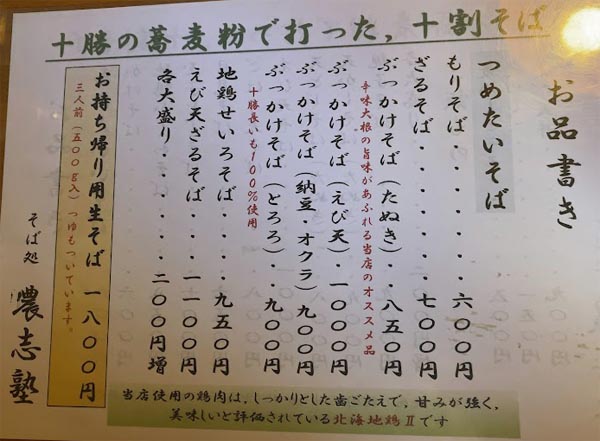 十勝の蕎麦粉で打った，十割そば
お品書き
つめたいそば
もりそば・・・・・・・六〇〇円
ざるそば・・・・・・・七〇〇円
ぶっかけそば（たぬき）・・八五〇円
辛味大根の旨味があふれる当店のオススメ品
ぶっかけそば（えび天）・一〇〇〇円
ぶっかけそば（納豆・オクラ）九〇〇円
ぶっかけそば（とろろ）・・九〇〇円
十勝長いも100％使用
地鶏せいろそば・・・・九五〇円
えび天ざるそば・・・一一〇〇円
各大盛り・・・・・・二〇〇円増
お持ち帰り用生そば 一八〇〇円
三人前（五〇〇g入）つゆもついています。
そば処 農志塾
当店使用の鶏肉は、しっかりとした歯ごたえで、甘みが強く、
美味しいと評価されている北海地鶏Ⅱです